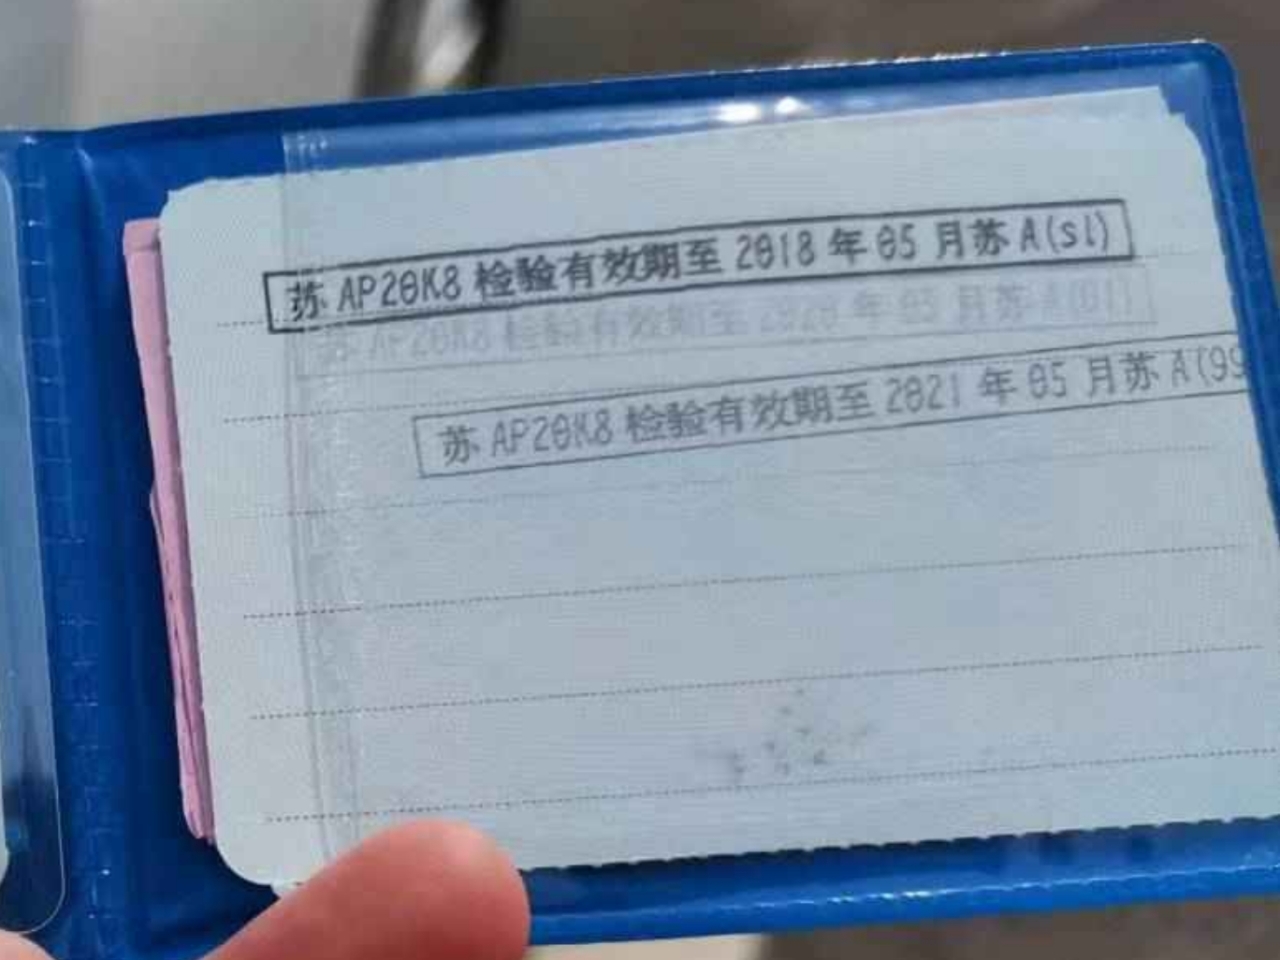 苏 AP20K8 检验有效期至 2018 年 05 月苏 A(sl)
苏 AP20K8 检验有效期至 2020 年 05 月苏 A(01)
苏 AP20K8 检验有效期至 2021 年 05 月苏 A(99